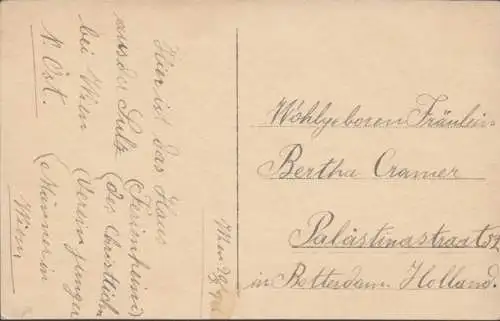 Hier ist das Haus
(Ferienheim)
aus der Sulz
(des Christlichn
bei Wien
Verein junger
N. Öst.
(Männer in
Wien,
Wien
Wohlgeboren Fräulein
Bertha Cramer
Palästinastraat 52
in Rotterdam Holland.